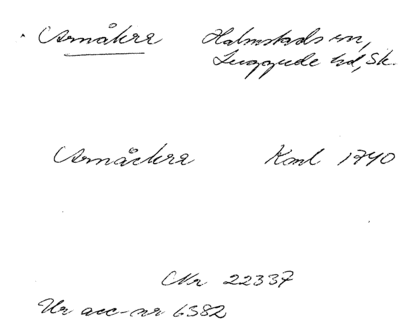 Armåkra Halmstads sn,
Luggude hd, Sk.
Armåckra Koml 1740
Nr 22337
Ur acc-nr 6382